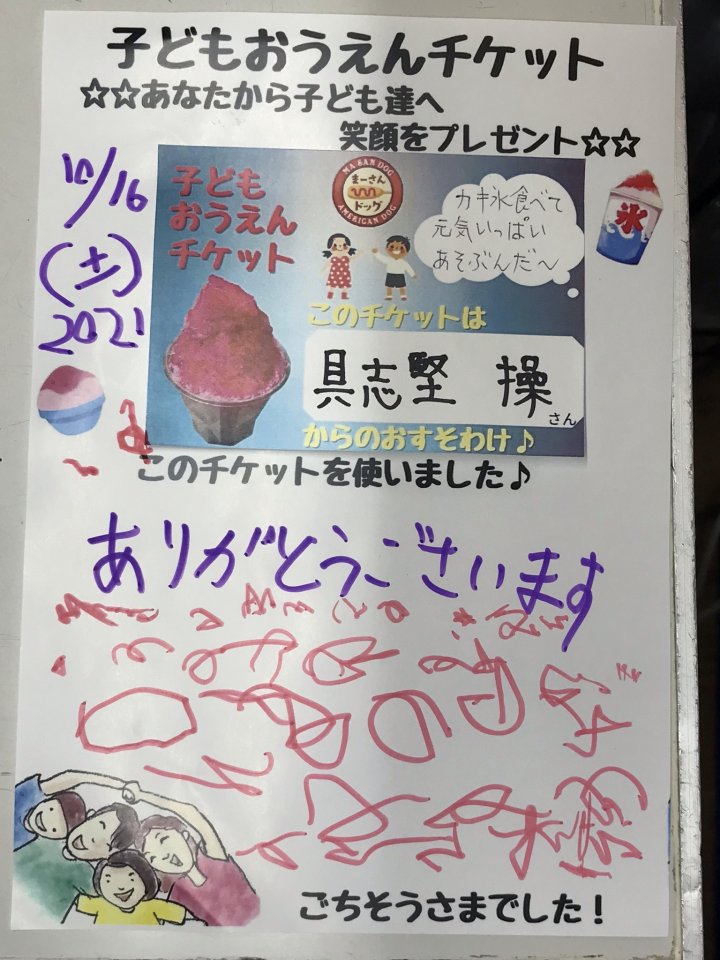 子どもおうえんチケット
☆☆あなたから子ども達へ
笑顔をプレゼント☆☆
10/16
(土)
2021
子ども
おうえん
チケット
MA SAN DOG
まーさん
ドッグ
AMERICAN DOG
カキ氷食べて
元気いっぱい
あそぶんだ〜
氷
このチケットは
具志堅 操
さん
からのおすそわけ♪
このチケットを使いました♪
ありがとうございます
ごちそうさまでした!